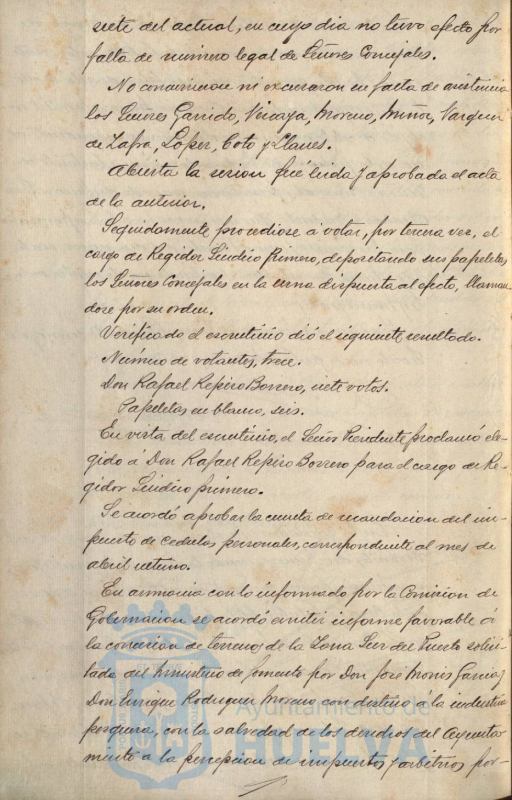 siete del actual, en cuyo dia no tuvo efecto por
falta de número legal de Señores Concejales.
No concurrieron ni excusaron su falta de asistencia
los Señores Garrido, Vizcaya, Moreno, Muñoz, Vazquez
de Zafra, Lopez, Coto y Llanes.
Abierta la sesion fué leida y aprobada el acta
de la anterior.
Seguidamente procediose á votar, por tercera vez, el
cargo de Regidor Síndico Primero, depositando sus papeletas
los Señores Concejales en la urna dispuesta al efecto, llaman-
dose por su orden.
Verificado el escrutinio dió el siguiente resultado.
Número de votantes, trece.
Don Rafael Repiso Borrero, siete votos.
Papeletas en blanco, seis.
En vista del escrutinio, el Señor Presidente proclamó ele-
gido á Don Rafael Repiso Borrero para el cargo de Re-
gidor Síndico primero.
Se acordó aprobar la cuenta de recaudacion del im-
puesto de cedulas personales, correspondiente al mes de
abril último.
En armonia con lo informado por la Comision de
Gobernacion se acordó emitir informe favorable á
la concesion de terrenos de la Zona Sur del Puerto solici-
tada del Ministerio de fomento por Don José Monis Garcia y
Don Enrique Rodriguez Moreno con destino á la industria
pesquera, con la salvedad de los derechos del Ayunta-
miento a la percepcion de impuestos y arbitrios por-
Ayuntamiento de
HUELVA